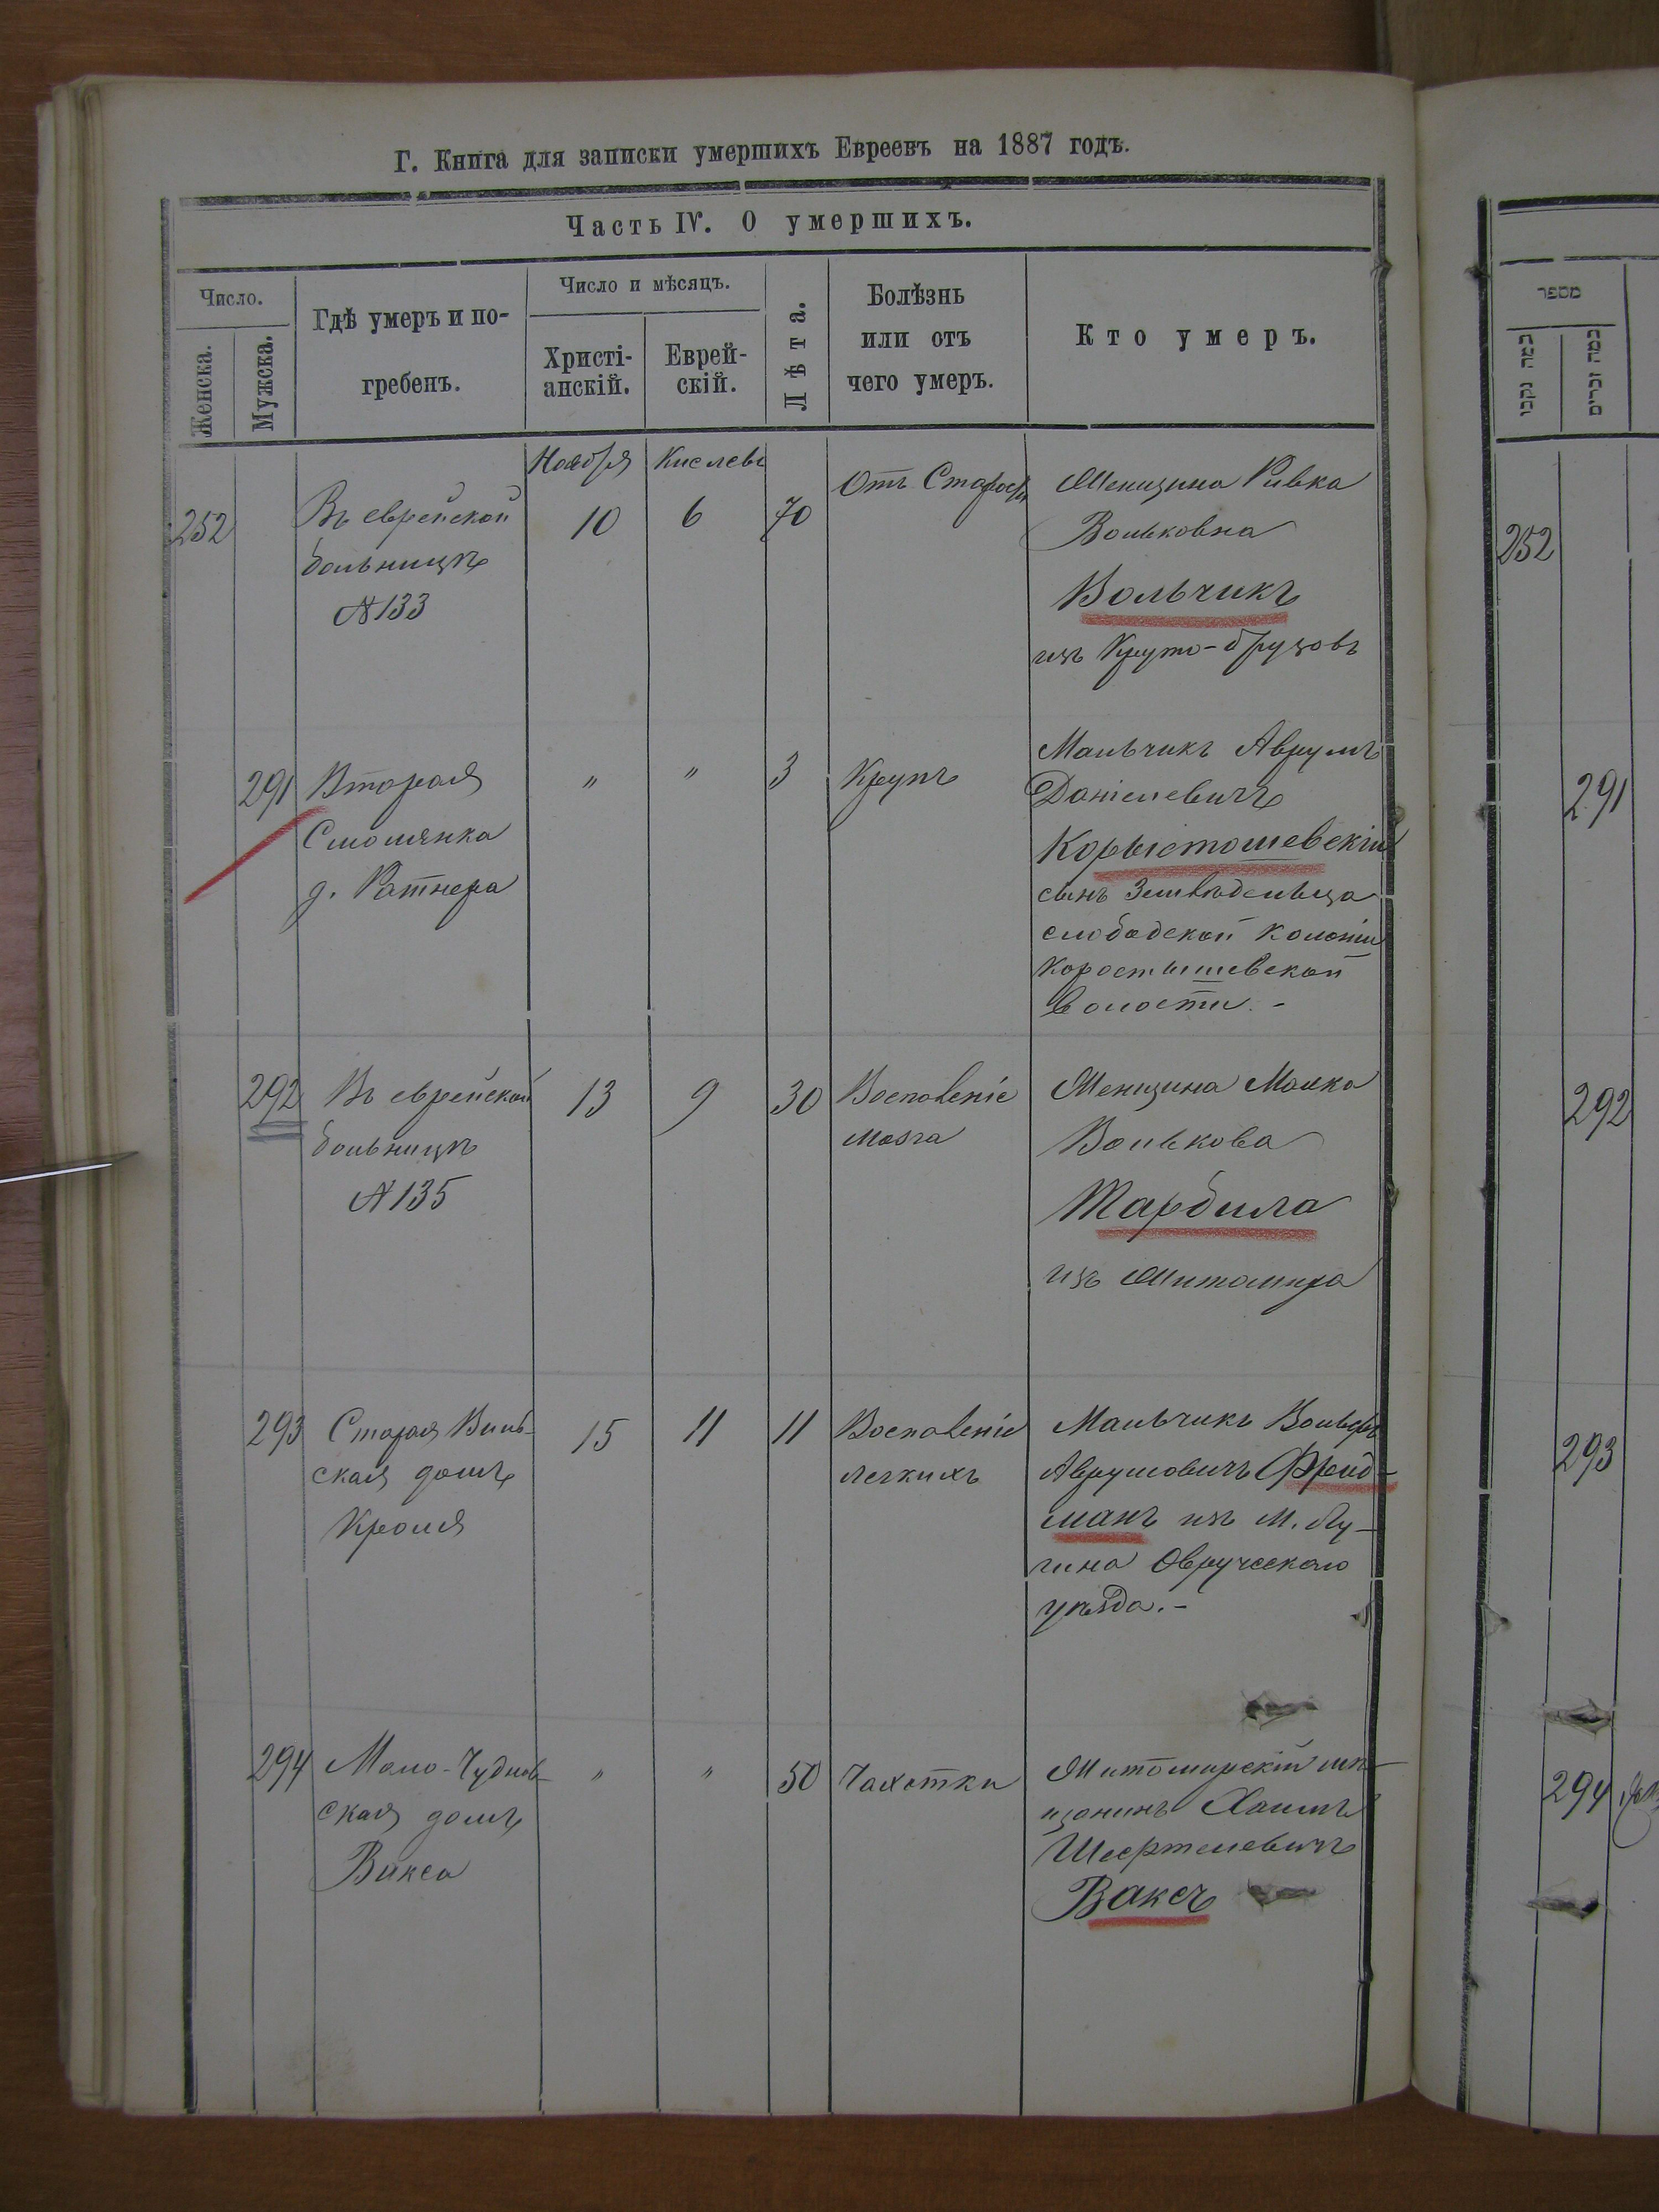 Г. Книга для записки умершихъ Евреевъ на 1887 годъ.
Часть IV. О умершихъ.
Число.
Женска.
Мужска.
Гдѣ умеръ и по-
гребенъ.
Число и мѣсяцъ.
Христі-
анскій.
Еврей-
скій.
Лѣта.
Болѣзнь
или отъ
чего умеръ.
Кто умеръ.
Ноября
Кислевъ
252
Въ еврейской
больницѣ
№ 133
10
6
70
Отъ
Женщина Ривка
Вольковна
Вольчикъ
изъ
291
Вторая
Смолянка
д. Ратнера
"
"
3
Крупъ
Мальчикъ Аврумъ
Даніелевичъ
Корыстошевскій
сынъ Земледельца
слободской Колоніи
Коростышевской
волости. -
292
Въ еврейской
больницѣ
№ 135
13
9
30
Воспаленіе
мозга
Женщина Малка
Волькова
Жарбила
изъ Житомира
293
Старая Виль-
ская домъ
Кроля
15
11
11
Воспаленіе
легкихъ
Мальчикъ Вольфъ
Аврумовичъ Фрид-
манъ изъ м. Лу-
гина Овручскаго
уѣзда. -
294
Мало-Чуднов-
ская домъ
Вакса
"
"
50
Чахотки
Житомирскій мѣ-
щанинъ Хаимъ
Ваксъ
מספר
כמה נקבו
כמה זכרים
252
291
292
293
294